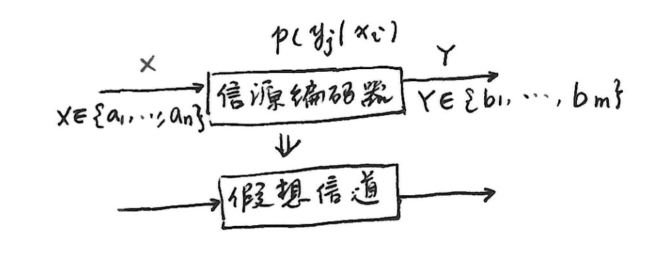 p(yj|xi)
X
Y
X∈{a1,…,an}
信源编码器
Y∈{b1,…,bm}
⇓
假想信道